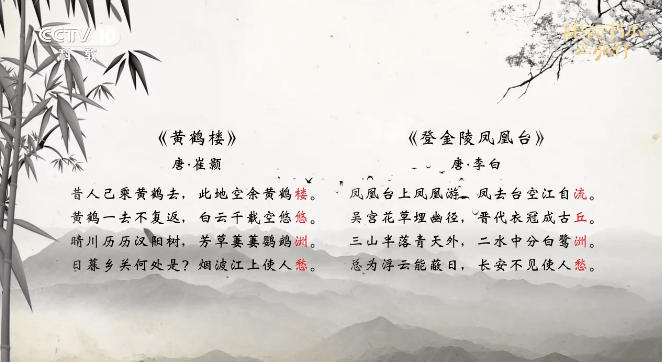 CCTV 10
科教
《黄鹤楼》
唐·崔颢
昔人已乘黄鹤去，此地空余黄鹤楼。
黄鹤一去不复返，白云千载空悠悠。
晴川历历汉阳树，芳草萋萋鹦鹉洲。
日暮乡关何处是？烟波江上使人愁。
《登金陵凤凰台》
唐·李白
凤凰台上凤凰游，凤去台空江自流。
吴宫花草埋幽径，晋代衣冠成古丘。
三山半落青天外，二水中分白鹭洲。
总为浮云能蔽日，长安不见使人愁。